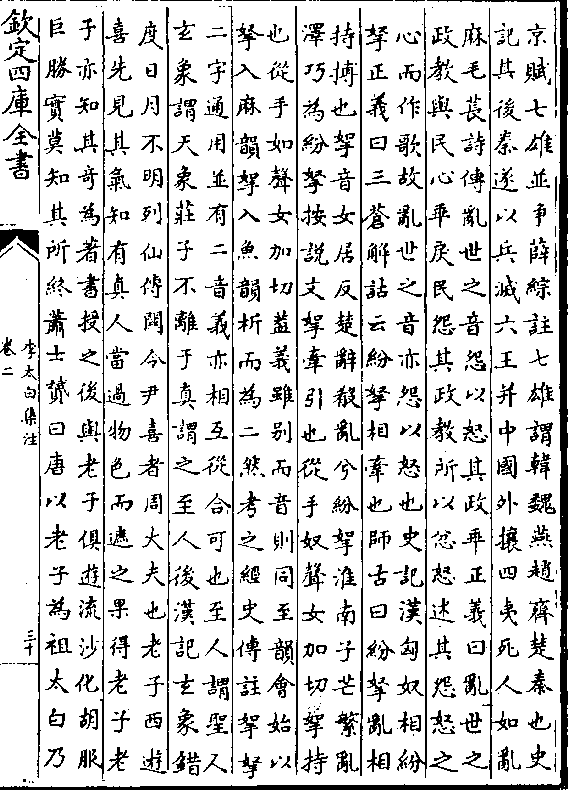 京賦七雄並爭薛綜註七雄謂韓魏燕趙齊楚秦也史
記其後秦遂以兵滅六王并中國外攘四夷死人如亂
麻毛萇詩傳亂世之音怨以怒其政乖正義曰亂世之
政教與民心乖戾民怨其政教所以忿怒述其怨怒之
心而作歌故亂世之音亦怨以怒也史記漢匈奴相紛
拏正義曰三蒼解詁云紛拏相牽也師古曰紛拏亂相
持搏也拏音女居反楚辭殽亂兮紛拏淮南子芒繁亂
澤巧為紛拏按説文拏牽引也從手奴聲女加切挐持
也從手如聲女加切葢義雖别而音則同至韻會始以
拏入麻韻挐入魚韻析而為二然考之經史傳註挐拏
二字通用並有二音義亦相互從合可也至人謂聖人
玄象謂天象莊子不離于真謂之至人後漢記玄象錯
度日月不明列仙傳關令尹喜者周大夫也老子西遊
喜先見其氣知有真人當過物色而遮之果得老子老
子亦知其奇為著書授之後與老子俱遊流沙化胡服
巨勝實莫知其所終蕭士贇曰唐以老子為祖太白乃
欽定四庫全書
李太白集注
卷二
三十